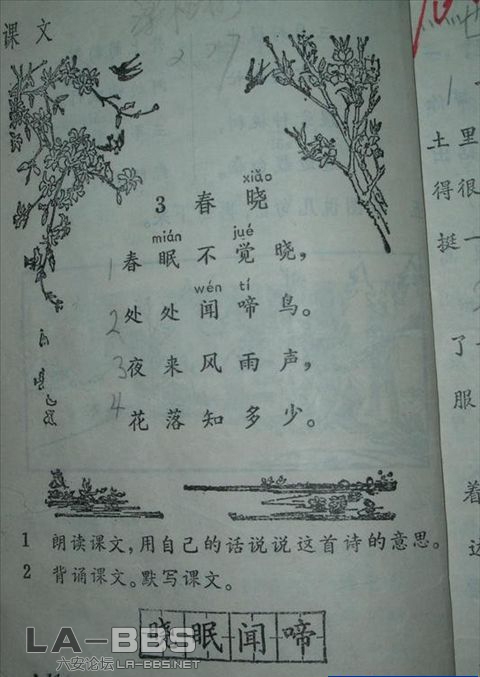 课文
xiǎo
3 春晓
mián jué
1 春眠不觉晓，
wén tí
2 处处闻啼鸟。
3 夜来风雨声，
4 花落知多少。
1 朗读课文，用自己的话说说这首诗的意思。
2 背诵课文。默写课文。
晓眠闻啼
LA-BBS
六安论坛LA-BBS.NET
土里
得很
挺一
了
服
着